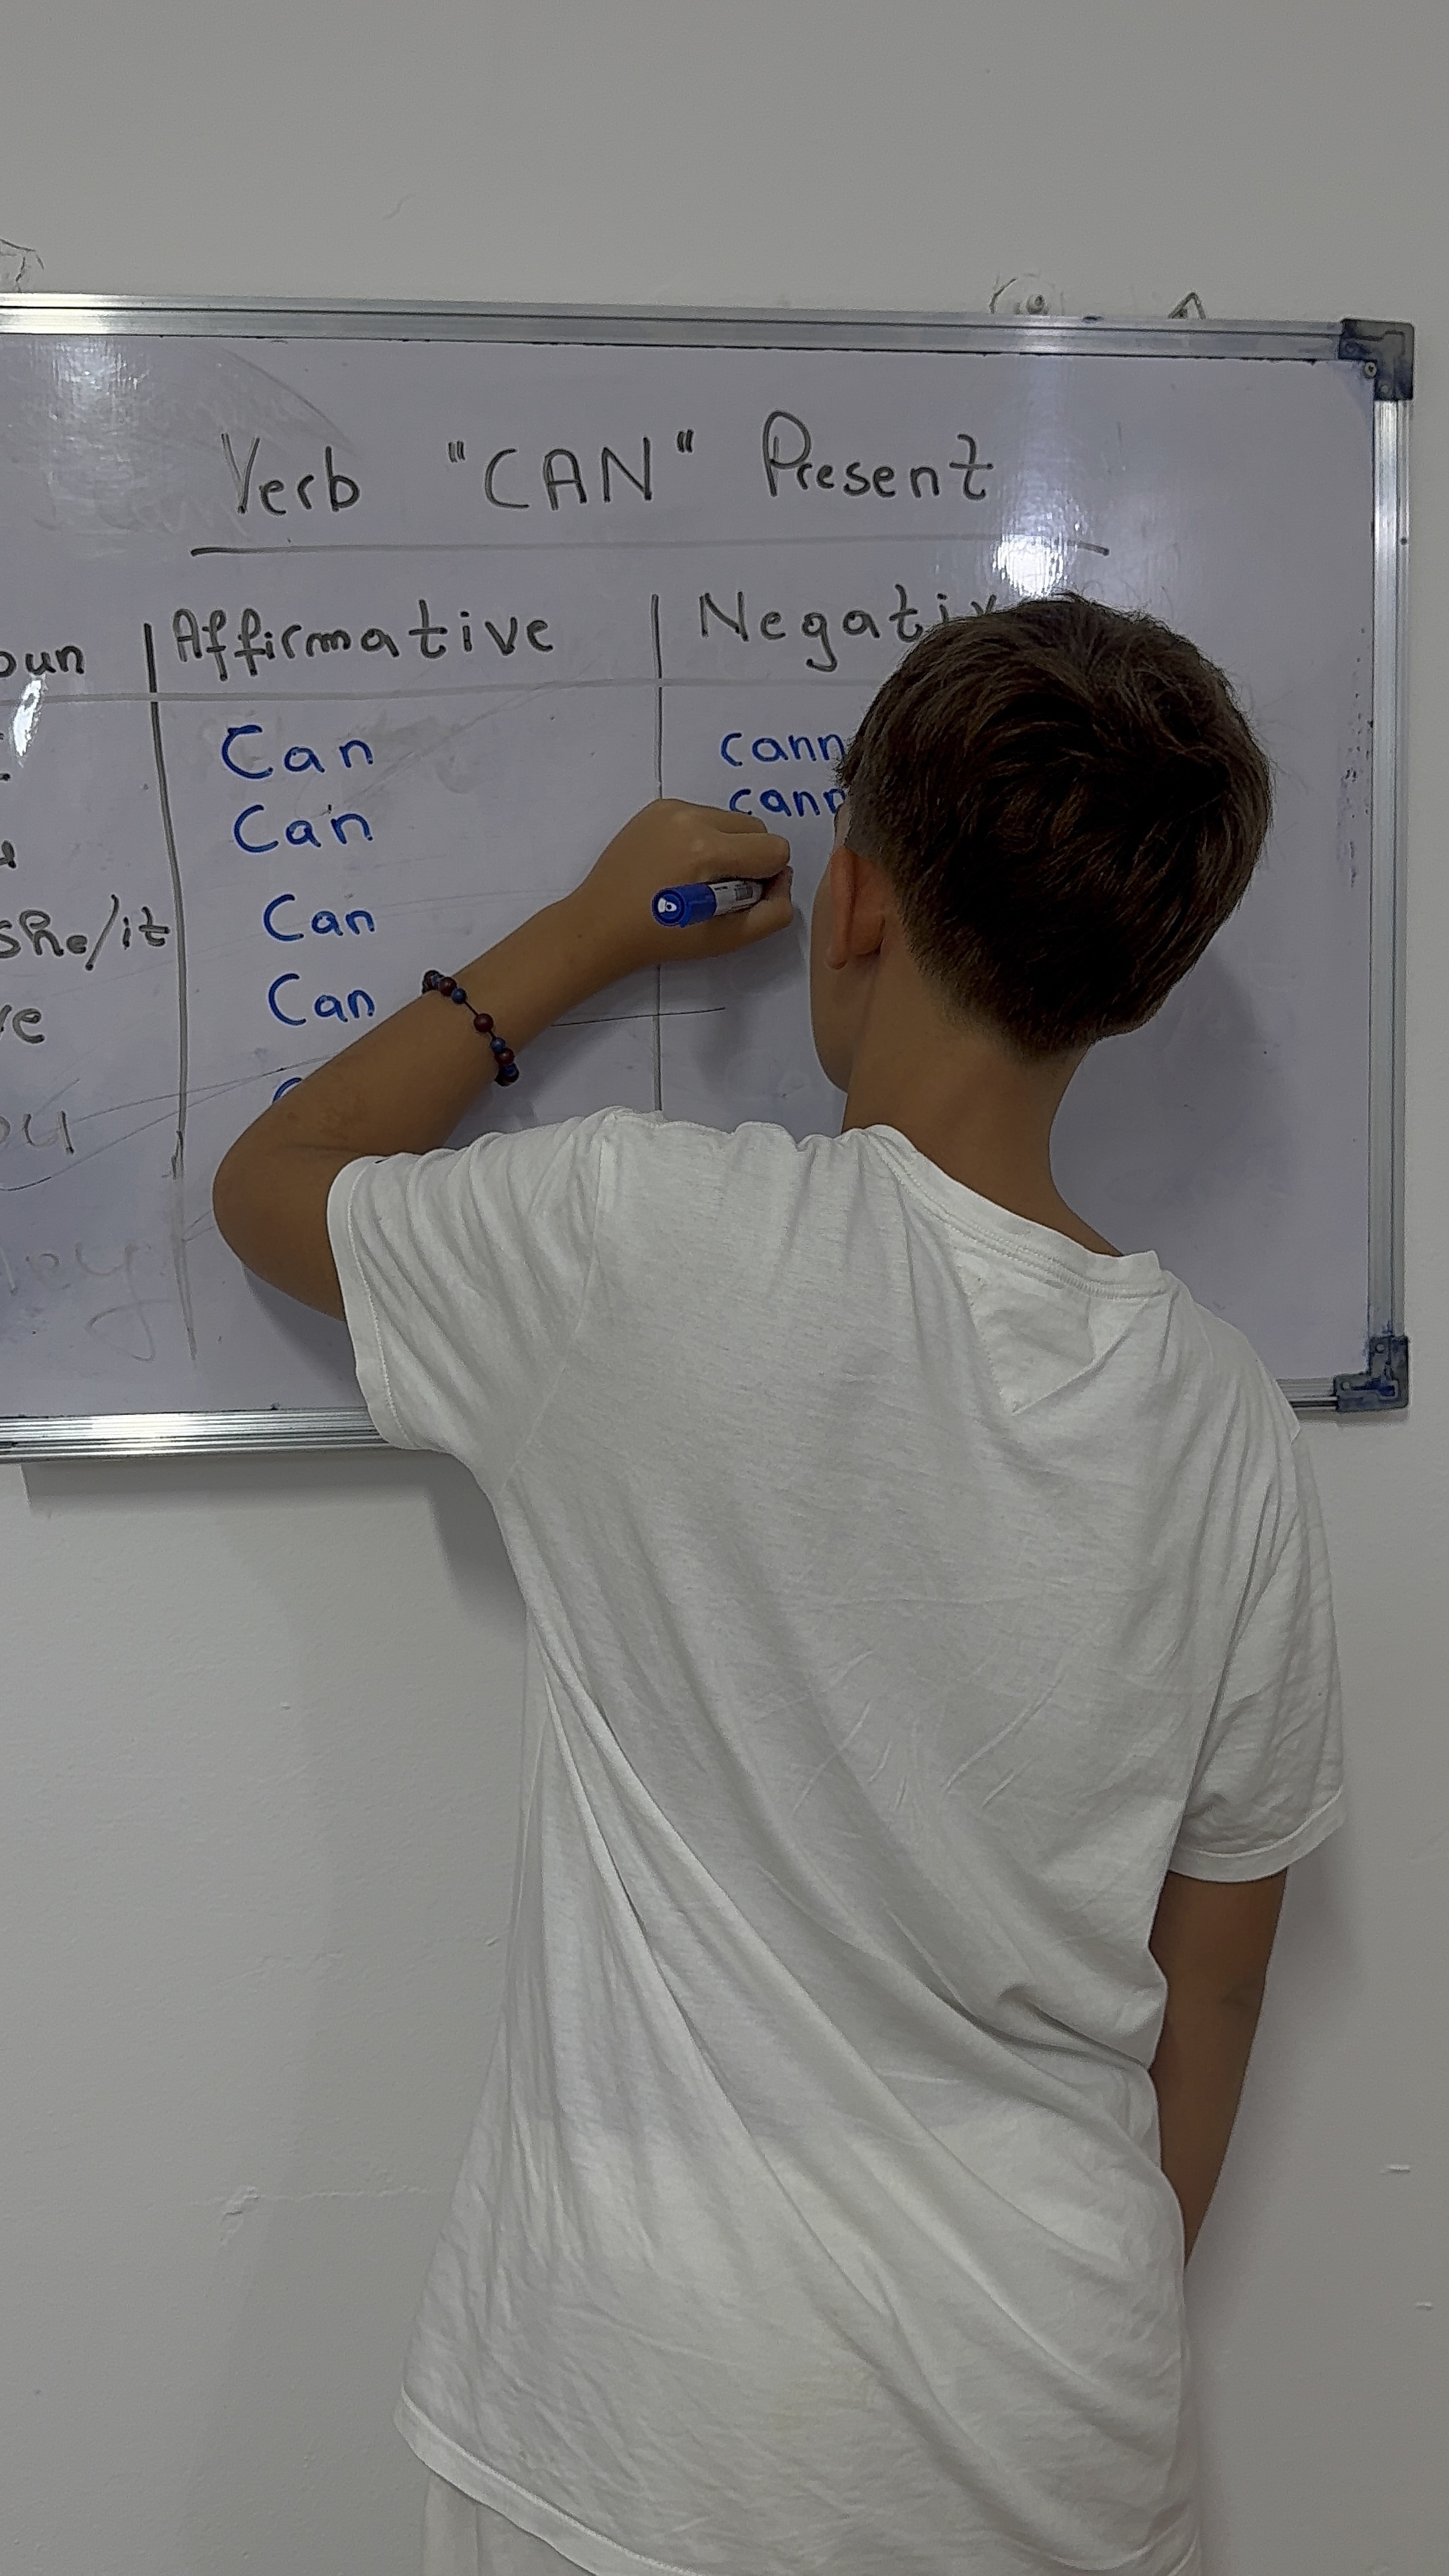 Verb "CAN" Present
oun Affirmative Negativ
Can cann
Can cann
she/it Can
we Can
ou
ey